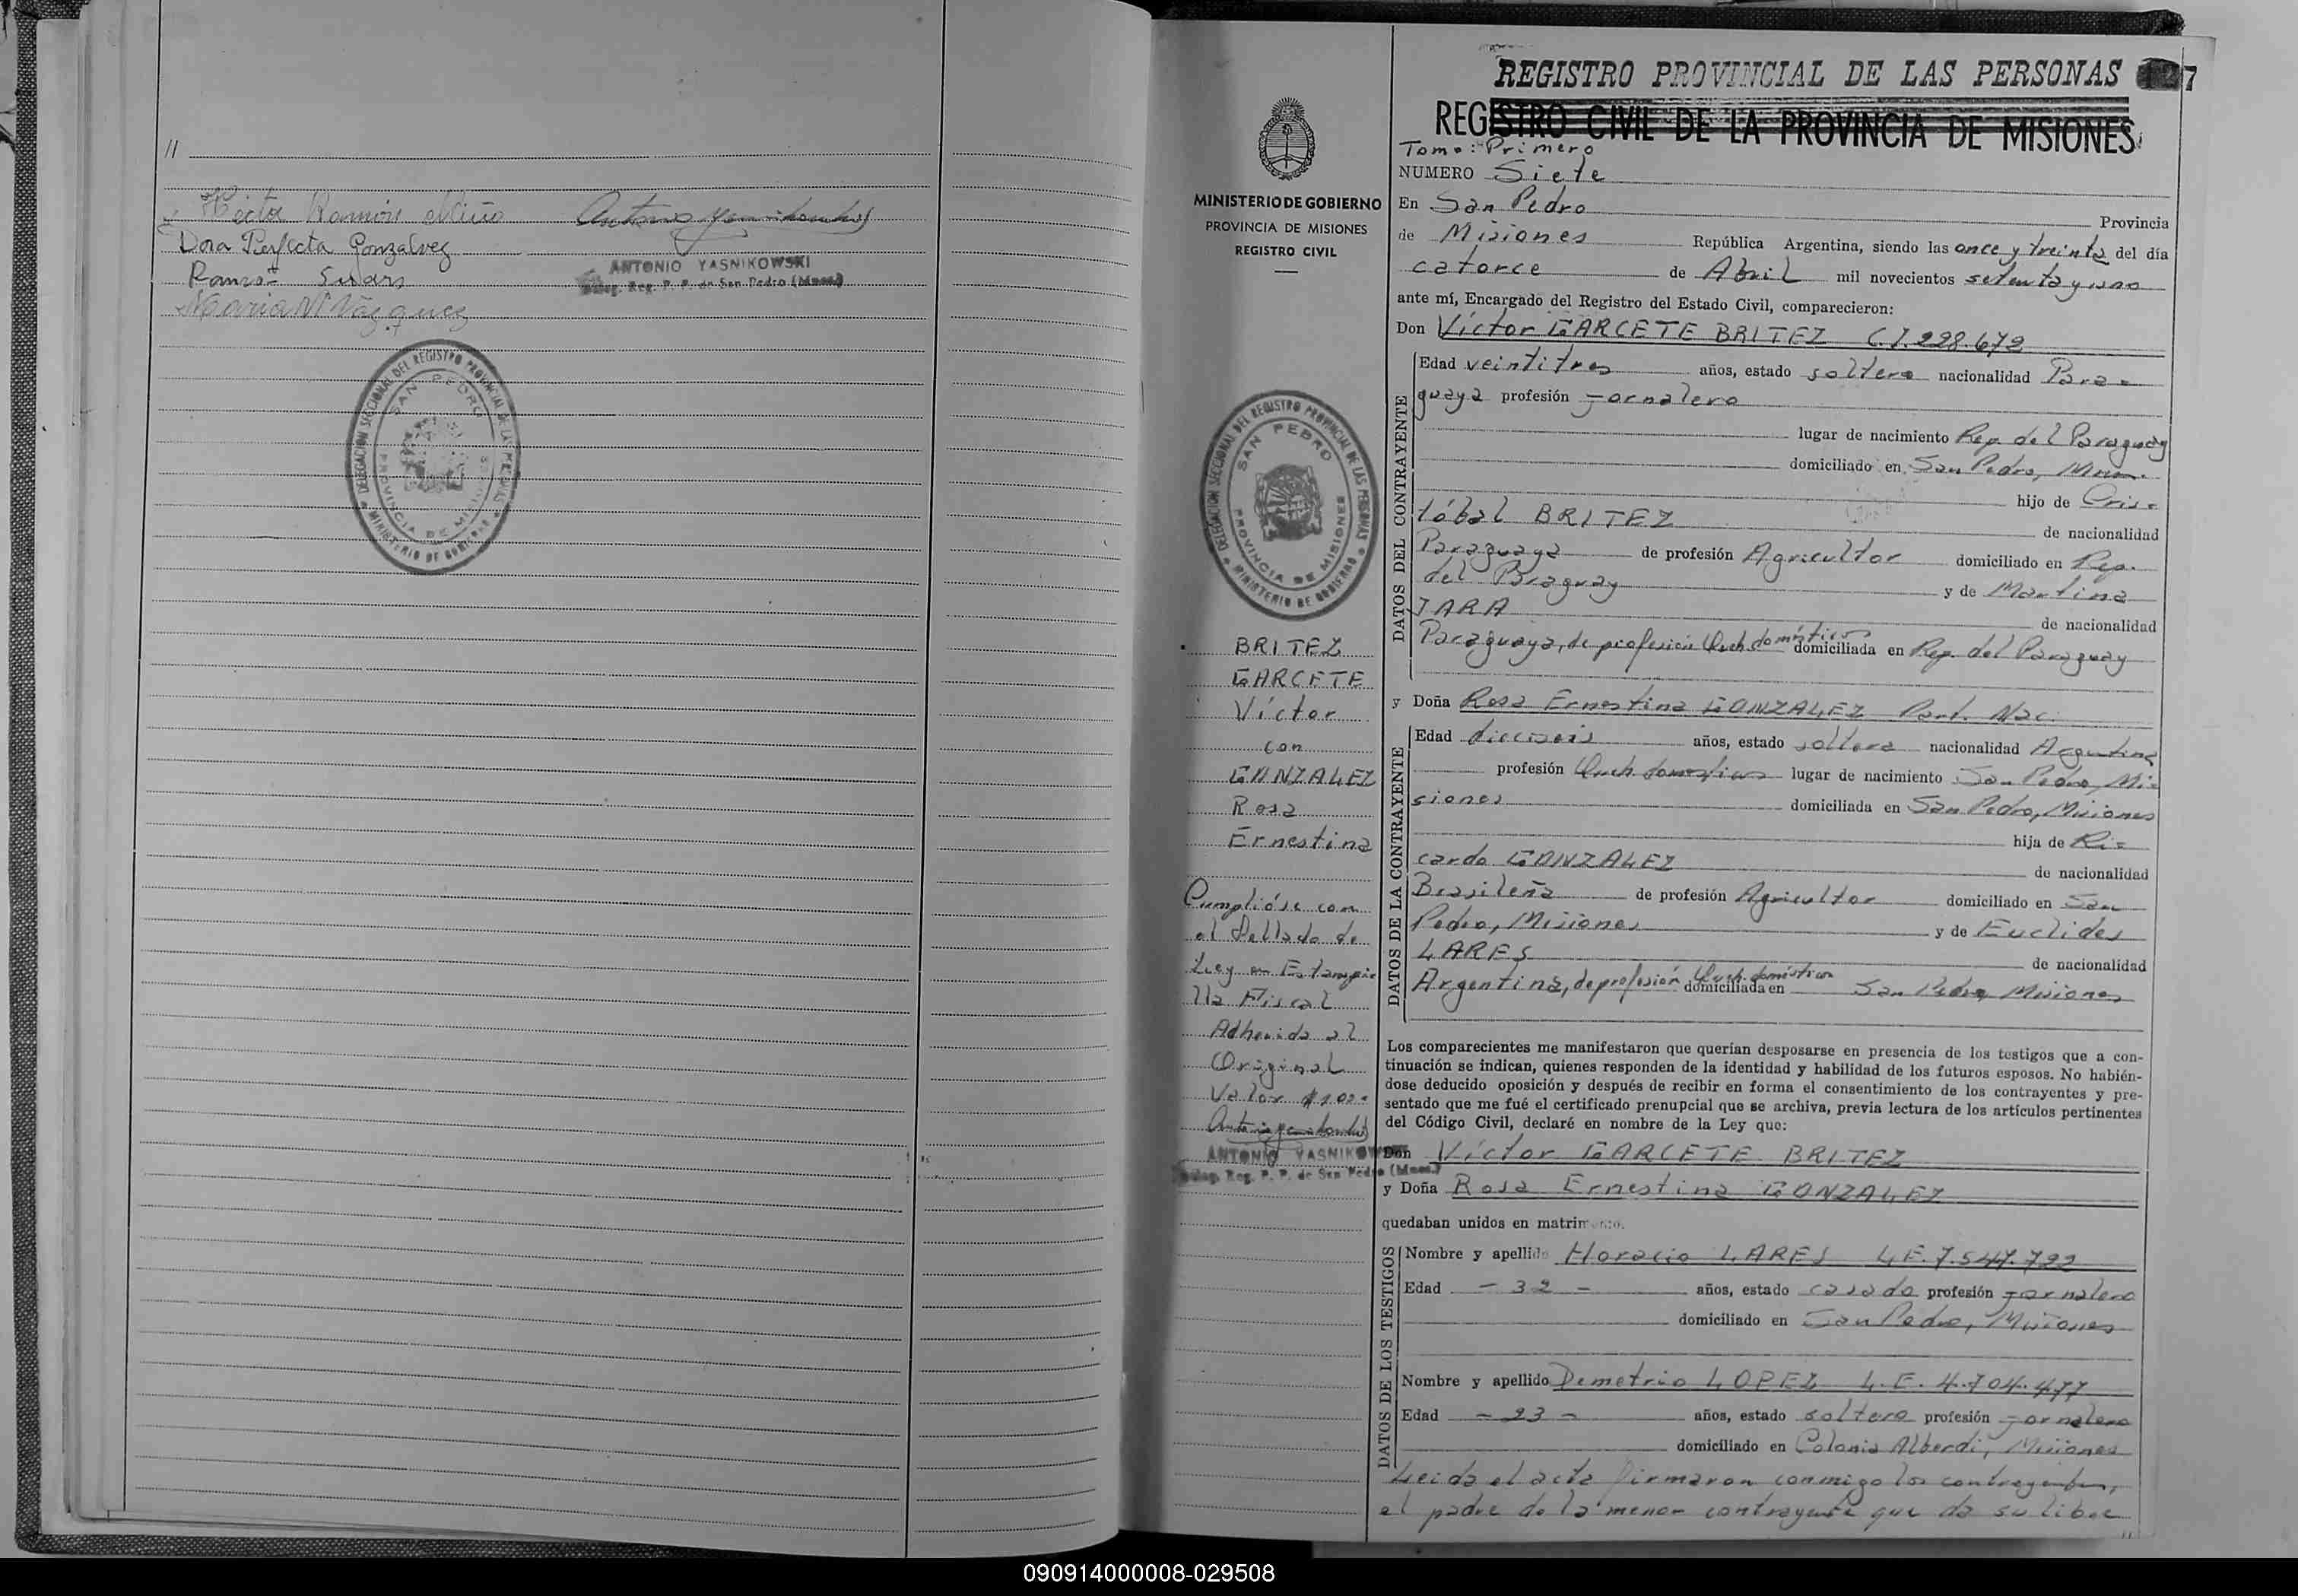 //
Héctor Ramón Miño
Antonio Yasnikowski
Dora Perfecta Gonzalvez
ANTONIO YASNIKOWSKI
Ramón
Deleg. Reg. P. P. de San Pedro (Mnes.)
Maria N Vázquez
DELEGACION SECCIONAL DEL REGISTRO PROVINCIAL DE LAS PERSONAS
SAN PEDRO
PROVINCIA DE MISIONES
MINISTERIO DE GOBIERNO
MINISTERIO DE GOBIERNO
PROVINCIA DE MISIONES
REGISTRO CIVIL
DELEGACION SECCIONAL DEL REGISTRO PROVINCIAL DE LAS PERSONAS
SAN PEDRO
PROVINCIA DE MISIONES
MINISTERIO DE GOBIERNO
BRITEZ
GARCETE
Víctor
con
GONZALEZ
Rosa
Ernestina
Cumplióse con
el Sellado de
Ley en Estampi
lla Fiscal
Adherida al
Original
Valor $
Antonio Yasnikowski
ANTONIO YASNIKOWSKI
Deleg. Reg. P. P. de San Pedro (Mnes.)
REGISTRO PROVINCIAL DE LAS PERSONAS 27
REGISTRO CIVIL DE LA PROVINCIA DE MISIONES
Tomo: Primero
NUMERO Siete
En San Pedro Provincia
de Misiones República Argentina, siendo las once y treinta del día
catorce de Abril mil novecientos setenta y uno
ante mí, Encargado del Registro del Estado Civil, comparecieron:
Don Víctor GARCETE BRITEZ C.I. 228.672
DATOS DEL CONTRAYENTE
Edad veintitres años, estado soltero nacionalidad Para=
guaya profesión jornalero
lugar de nacimiento Rep. del Paraguay
domiciliado en San Pedro, Misiones
hijo de Cris=
tóbal BRITEZ
de nacionalidad
Paraguaya de profesión Agricultor domiciliado en Rep.
del Paraguay y de Martina
JARA
de nacionalidad
Paraguaya, de profesión Queh. domésticos domiciliada en Rep. del Paraguay
y Doña Rosa Ernestina GONZALEZ Part. Nac.
DATOS DE LA CONTRAYENTE
Edad dieciseis años, estado soltera nacionalidad Argentina
profesión Queh. domésticos lugar de nacimiento San Pedro, Mi=
siones domiciliada en San Pedro, Misiones
hija de Ri=
cardo GONZALEZ
de nacionalidad
Brasileña de profesión Agricultor domiciliado en San
Pedro, Misiones y de Euclides
LARES
de nacionalidad
Argentina, de profesión Queh. domésticos domiciliada en San Pedro, Misiones
Los comparecientes me manifestaron que querían desposarse en presencia de los testigos que a con-
tinuación se indican, quienes responden de la identidad y habilidad de los futuros esposos. No habién-
dose deducido oposición y después de recibir en forma el consentimiento de los contrayentes y pre-
sentado que me fué el certificado prenupcial que se archiva, previa lectura de los artículos pertinentes
del Código Civil, declaré en nombre de la Ley que:
Don Víctor GARCETE BRITEZ
y Doña Rosa Ernestina GONZALEZ
quedaban unidos en matrimonio.
DATOS DE LOS TESTIGOS
Nombre y apellido Horacio LARES L.E. 7.547.722
Edad - 32 - años, estado casado profesión jornalero
domiciliado en San Pedro, Misiones
Nombre y apellido Demetrio LOPEZ L.E. 4.704.477
Edad - 23 - años, estado soltero profesión jornalero
domiciliado en Colonia Alberdi, Misiones
Leida el acta firmaron conmigo los contrayentes,
el padre de la menor contrayente que da su libre
//
090914000008-029508